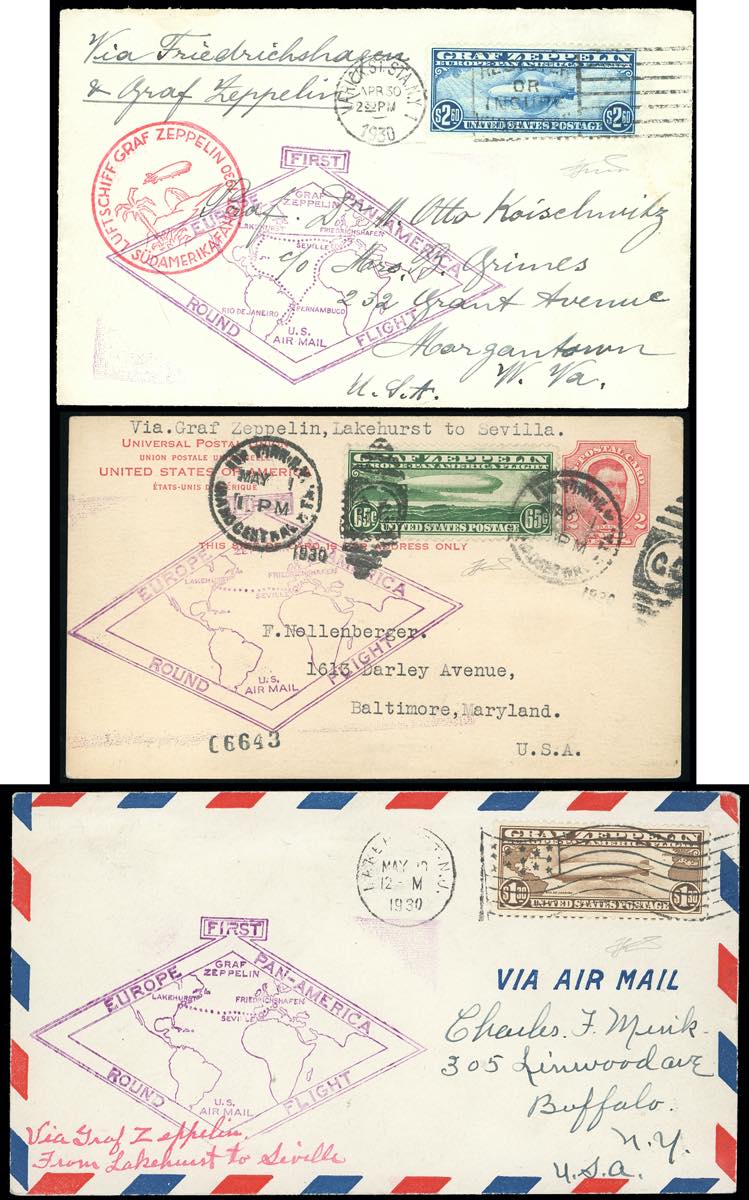 Via Friedrichshagen
& Graf Zeppelin
VARICK ST. STA. N.Y. 1
APR 30
2 PM
1930
GRAF ZEPPELIN
EUROPE-PAN AMERICA FLIGHT
OR
$2.60 UNITED STATES POSTAGE $2.60
LUFTSCHIFF GRAF ZEPPELIN 1930
SÜDAMERIKAFAHRT
FIRST
EUROPE PAN-AMERICA
GRAF
ZEPPELIN
LAKEHURST FRIEDRICHSHAFEN
SEVILLE
RIO DE JANEIRO PERNAMBUCO
ROUND FLIGHT
U.S.
AIR MAIL
Otto Koischwitz
c/o Mrs. Grimes
232 Grant Avenue
Morgantown
U.S.A. W. Va.
Via.Graf Zeppelin,Lakehurst to Sevilla.
UNIVERSAL POSTAL UNION
UNION POSTALE UNIVERSELLE
UNITED STATES OF AMERICA
ÉTATS-UNIS D'AMÉRIQUE
THIS SIDE OF CARD IS FOR ADDRESS ONLY
MAY 1
PM
GRAND CENTRAL STA.
1930
GRAF ZEPPELIN
EUROPE-PAN AMERICA FLIGHT
65¢ UNITED STATES POSTAGE 65¢
POSTAL CARD
2
PM
1930
EUROPE AMERICA
LAKEHURST FRIEDRICHSHAFEN
SEVILLE
ROUND FLIGHT
U.S.
AIR MAIL
F.Nellenberger.
1613 Darley Avenue,
Baltimore,Maryland.
U.S.A.
C6643
MAY
12 M
1930
GRAF ZEPPELIN
EUROPE-PAN AMERICA FLIGHT
$1.30 UNITED STATES POSTAGE $1.30
FIRST
EUROPE PAN-AMERICA
GRAF
ZEPPELIN
LAKEHURST FRIEDRICHSHAFEN
SEVILLE
ROUND FLIGHT
U.S.
AIR MAIL
VIA AIR MAIL
Charles F. Mink
305 Linwood ave
Buffalo.
N.Y.
U.S.A.
Via Graf Zeppelin.
From Lakehurst to Seville